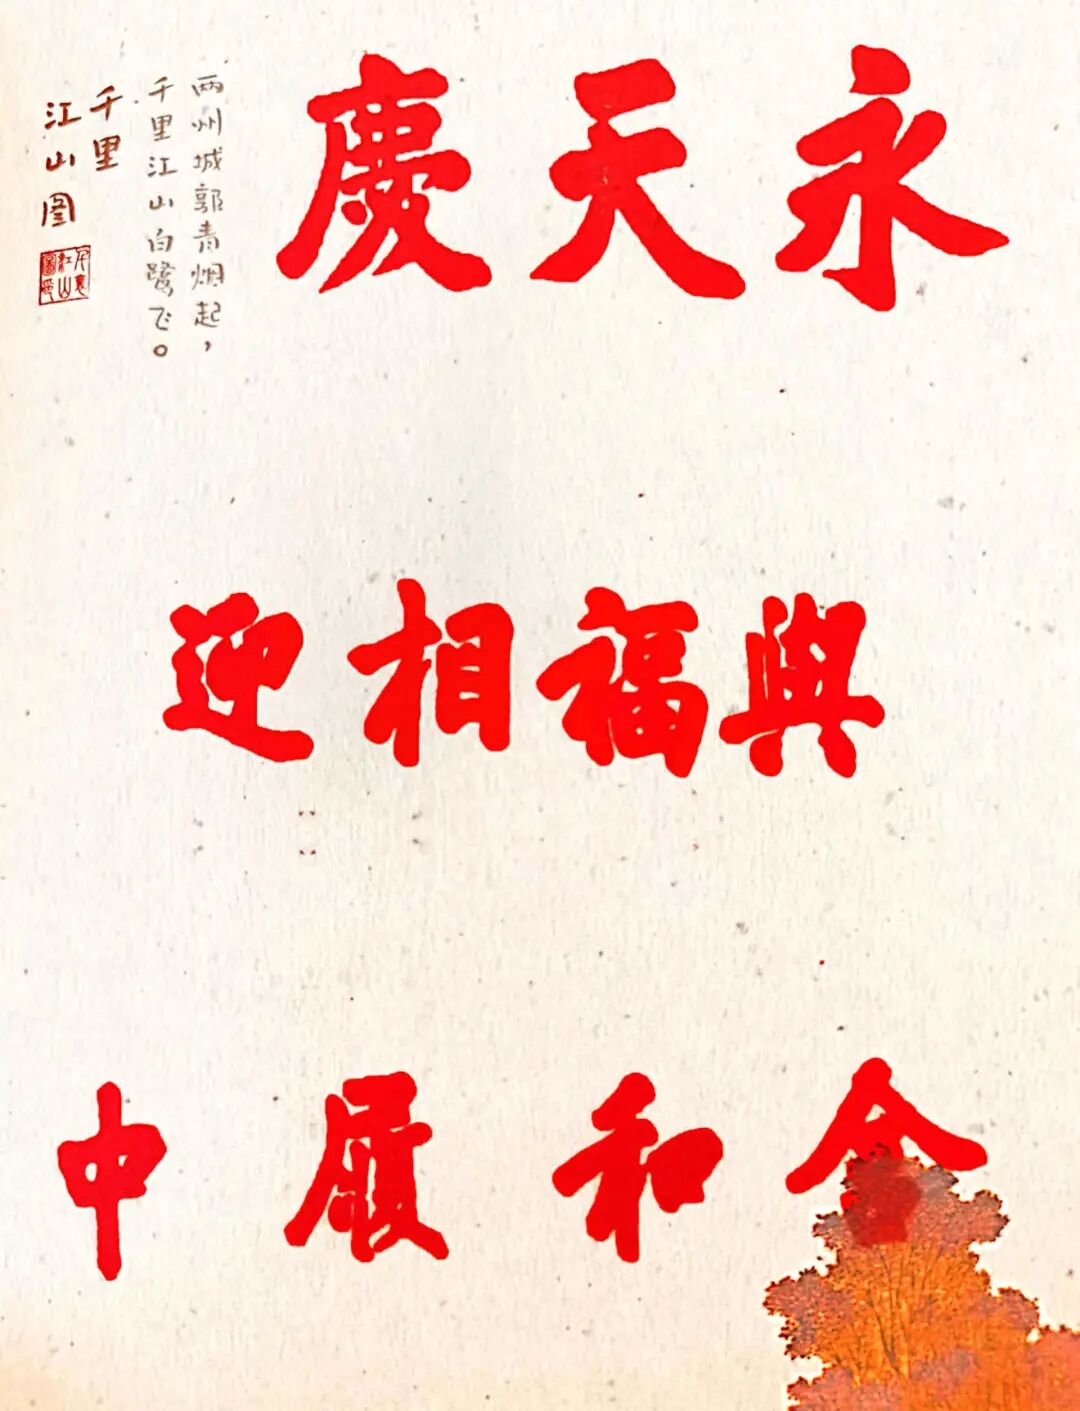 永天慶
與福相迎
含和履中
两州城郭青烟起，
千里江山白鹭飞。
千里
江山图